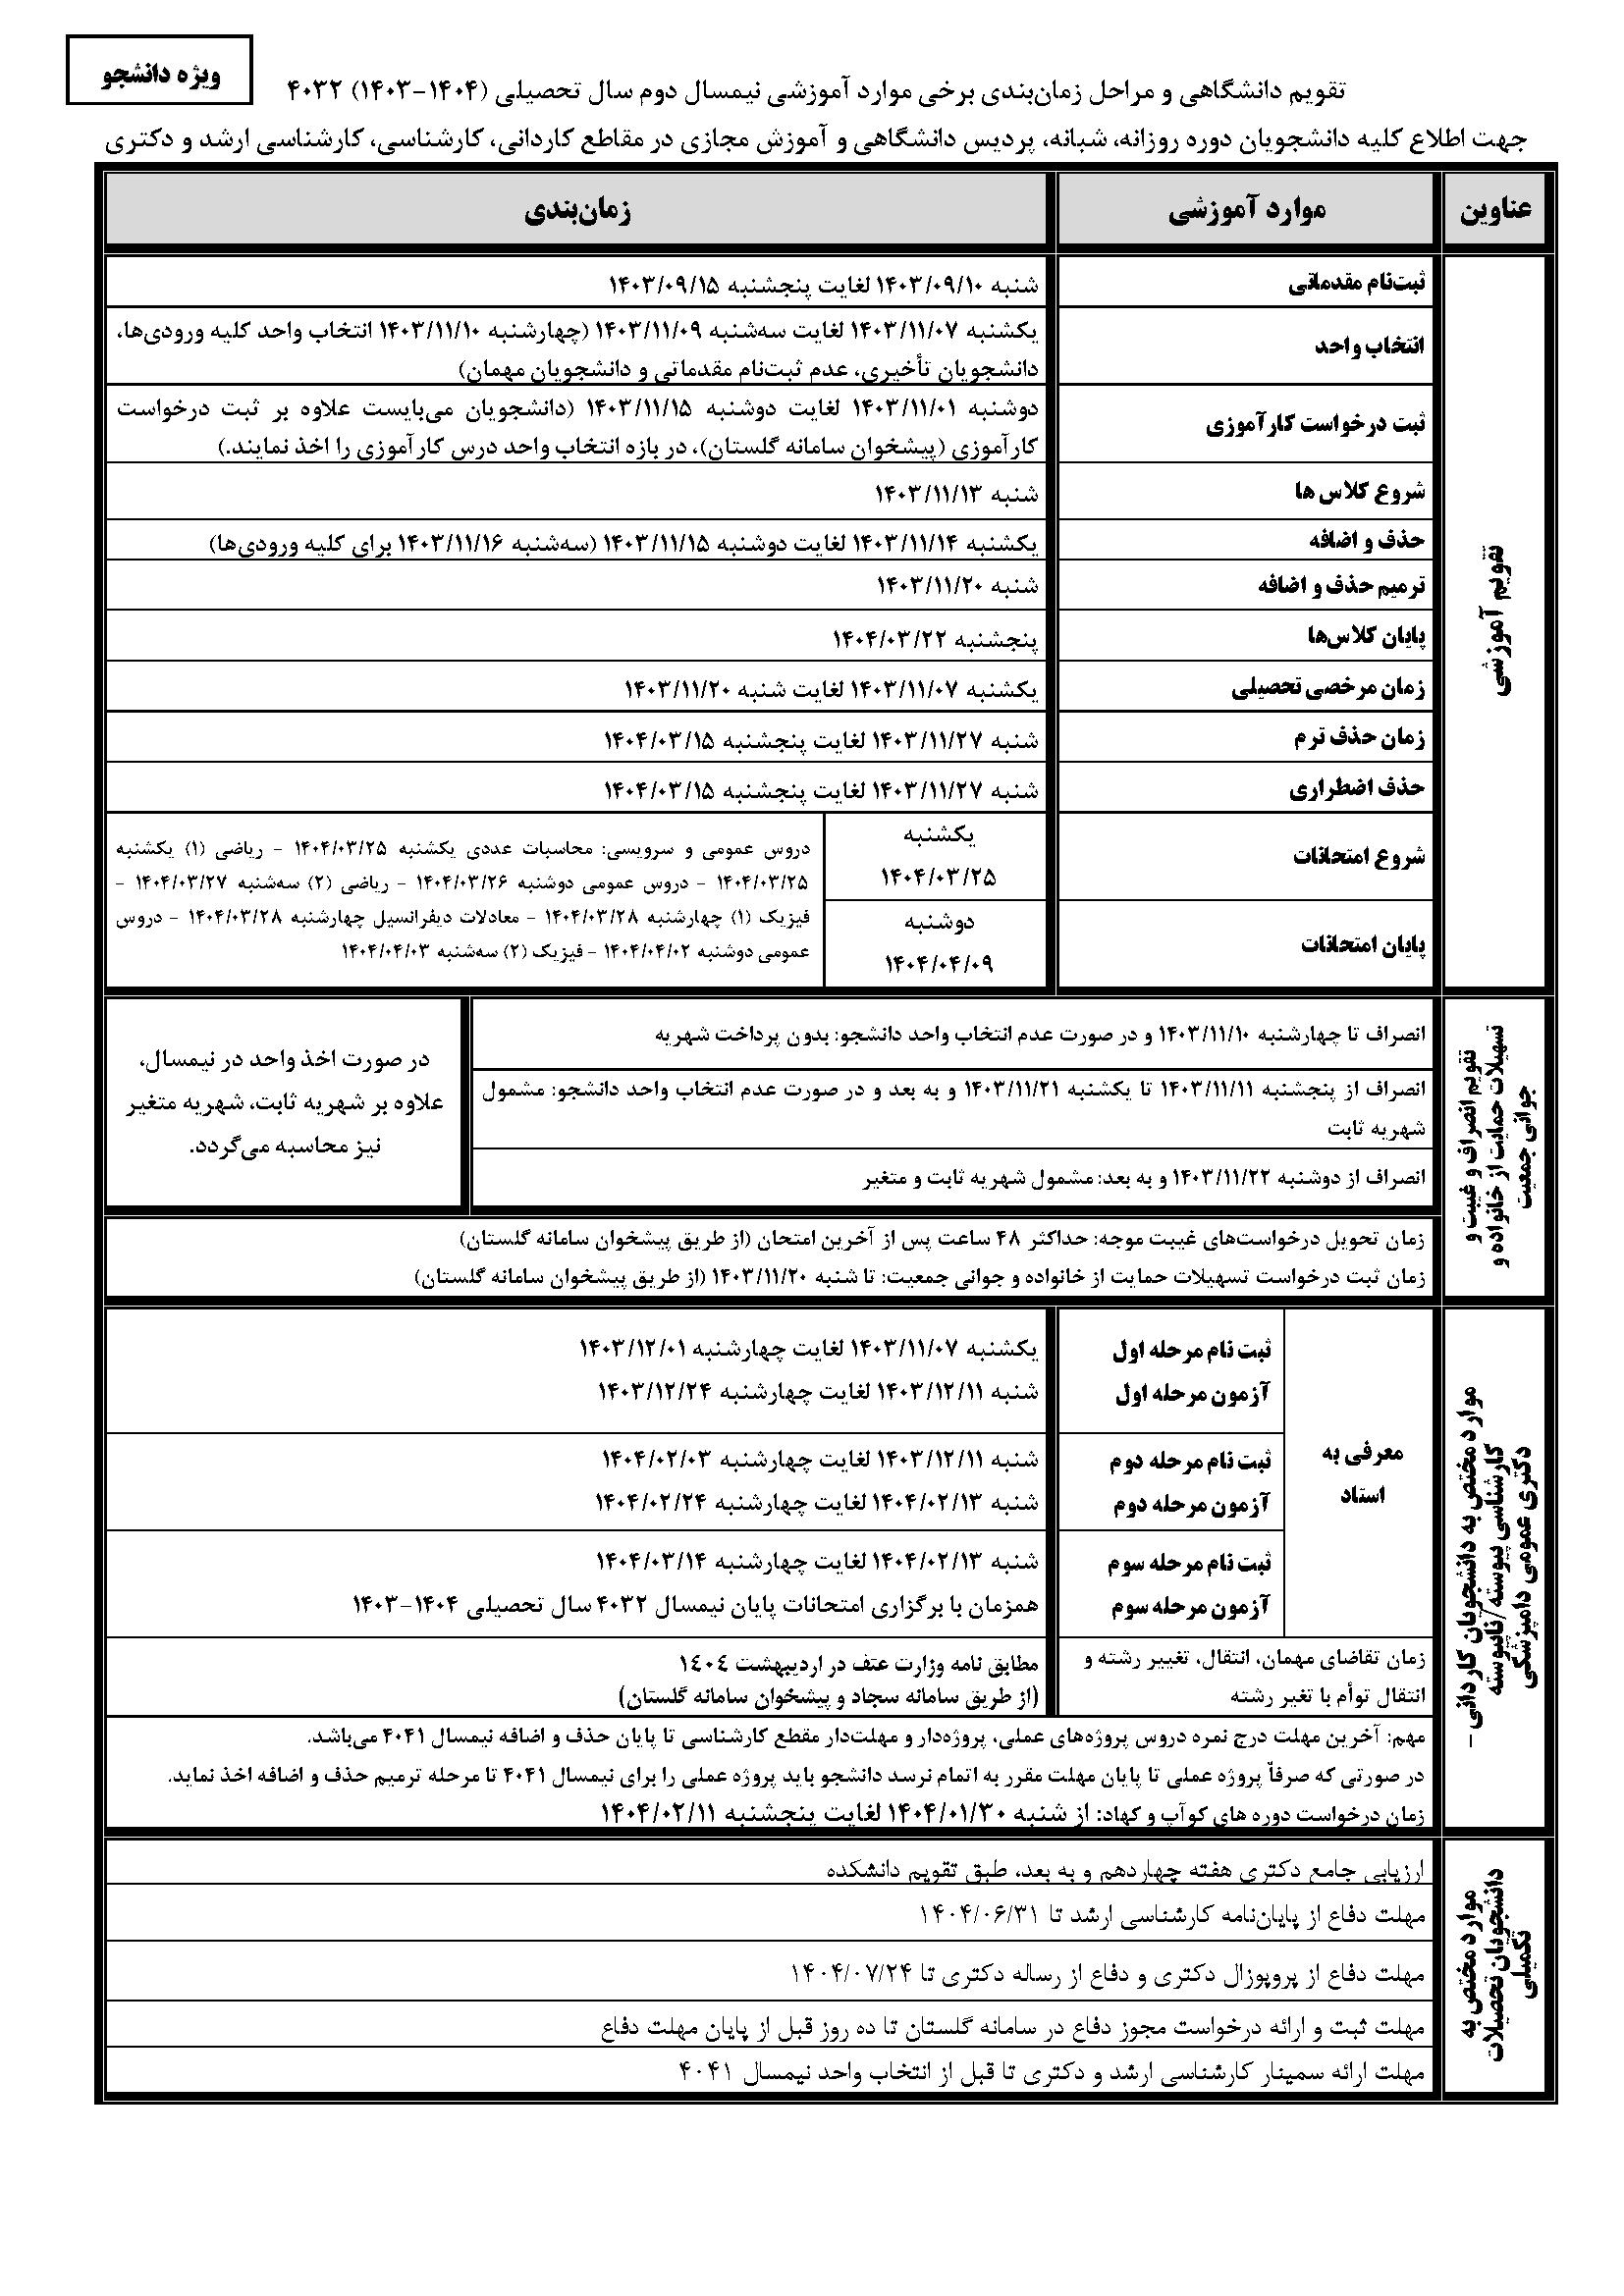 ویژه دانشجو
تقویم دانشگاهی و مراحل زمان‌بندی برخی موارد آموزشی نیمسال دوم سال تحصیلی (۱۴۰۴-۱۴۰۳) ۴۰۳۲
جهت اطلاع کلیه دانشجویان دوره روزانه، شبانه، پردیس دانشگاهی و آموزش مجازی در مقاطع کاردانی، کارشناسی، کارشناسی ارشد و دکتری
عناوین
موارد آموزشی
زمان‌بندی
تقویم آموزشی
ثبت‌نام مقدماتی
شنبه ۱۴۰۳/۰۹/۱۰ لغایت پنجشنبه ۱۴۰۳/۰۹/۱۵
انتخاب واحد
یکشنبه ۱۴۰۳/۱۱/۰۷ لغایت سه‌شنبه ۱۴۰۳/۱۱/۰۹ (چهارشنبه ۱۴۰۳/۱۱/۱۰ انتخاب واحد کلیه ورودی‌ها،
دانشجویان تأخیری، عدم ثبت‌نام مقدماتی و دانشجویان مهمان)
ثبت درخواست کارآموزی
دوشنبه ۱۴۰۳/۱۱/۰۱ لغایت دوشنبه ۱۴۰۳/۱۱/۱۵ (دانشجویان می‌بایست علاوه بر ثبت درخواست
کارآموزی (پیشخوان سامانه گلستان)، در بازه انتخاب واحد درس کارآموزی را اخذ نمایند.)
شروع کلاس ها
شنبه ۱۴۰۳/۱۱/۱۳
حذف و اضافه
یکشنبه ۱۴۰۳/۱۱/۱۴ لغایت دوشنبه ۱۴۰۳/۱۱/۱۵ (سه‌شنبه ۱۴۰۳/۱۱/۱۶ برای کلیه ورودی‌ها)
ترمیم حذف و اضافه
شنبه ۱۴۰۳/۱۱/۲۰
پایان کلاس‌ها
پنجشنبه ۱۴۰۴/۰۳/۲۲
زمان مرخصی تحصیلی
یکشنبه ۱۴۰۳/۱۱/۰۷ لغایت شنبه ۱۴۰۳/۱۱/۲۰
زمان حذف ترم
شنبه ۱۴۰۳/۱۱/۲۷ لغایت پنجشنبه ۱۴۰۴/۰۳/۱۵
حذف اضطراری
شنبه ۱۴۰۳/۱۱/۲۷ لغایت پنجشنبه ۱۴۰۴/۰۳/۱۵
شروع امتحانات
یکشنبه
۱۴۰۴/۰۳/۲۵
پایان امتحانات
دوشنبه
۱۴۰۴/۰۴/۰۹
دروس عمومی و سرویسی: محاسبات عددی یکشنبه ۱۴۰۴/۰۳/۲۵ - ریاضی (۱) یکشنبه
۱۴۰۴/۰۳/۲۵ - دروس عمومی دوشنبه ۱۴۰۴/۰۳/۲۶ - ریاضی (۲) سه‌شنبه ۱۴۰۴/۰۳/۲۷ -
فیزیک (۱) چهارشنبه ۱۴۰۴/۰۳/۲۸ - معادلات دیفرانسیل چهارشنبه ۱۴۰۴/۰۳/۲۸ - دروس
عمومی دوشنبه ۱۴۰۴/۰۴/۰۲ - فیزیک (۲) سه‌شنبه ۱۴۰۴/۰۴/۰۳
تقویم انصراف و غیبت و
تسهیلات حمایت از خانواده و
جوانی جمعیت
انصراف تا چهارشنبه ۱۴۰۳/۱۱/۱۰ و در صورت عدم انتخاب واحد دانشجو: بدون پرداخت شهریه
انصراف از پنجشنبه ۱۴۰۳/۱۱/۱۱ تا یکشنبه ۱۴۰۳/۱۱/۲۱ و به بعد و در صورت عدم انتخاب واحد دانشجو: مشمول
شهریه ثابت
انصراف از دوشنبه ۱۴۰۳/۱۱/۲۲ و به بعد: مشمول شهریه ثابت و متغیر
در صورت اخذ واحد در نیمسال،
علاوه بر شهریه ثابت، شهریه متغیر
نیز محاسبه می‌گردد.
زمان تحویل درخواست‌های غیبت موجه: حداکثر ۴۸ ساعت پس از آخرین امتحان (از طریق پیشخوان سامانه گلستان)
زمان ثبت درخواست تسهیلات حمایت از خانواده و جوانی جمعیت: تا شنبه ۱۴۰۳/۱۱/۲۰ (از طریق پیشخوان سامانه گلستان)
موارد مختص به دانشجویان کاردانی -
کارشناسی پیوسته/ناپیوسته
دکتری عمومی دامپزشکی
معرفی به
استاد
ثبت نام مرحله اول
یکشنبه ۱۴۰۳/۱۱/۰۷ لغایت چهارشنبه ۱۴۰۳/۱۲/۰۱
آزمون مرحله اول
شنبه ۱۴۰۳/۱۲/۱۱ لغایت چهارشنبه ۱۴۰۳/۱۲/۲۴
ثبت نام مرحله دوم
شنبه ۱۴۰۳/۱۲/۱۱ لغایت چهارشنبه ۱۴۰۴/۰۲/۰۳
آزمون مرحله دوم
شنبه ۱۴۰۴/۰۲/۱۳ لغایت چهارشنبه ۱۴۰۴/۰۲/۲۴
ثبت نام مرحله سوم
شنبه ۱۴۰۴/۰۲/۱۳ لغایت چهارشنبه ۱۴۰۴/۰۳/۱۴
آزمون مرحله سوم
همزمان با برگزاری امتحانات پایان نیمسال ۴۰۳۲ سال تحصیلی ۱۴۰۴-۱۴۰۳
زمان تقاضای مهمان، انتقال، تغییر رشته و
انتقال توأم با تغیر رشته
مطابق نامه وزارت عتف در اردیبهشت ۱۴۰۴
(از طریق سامانه سجاد و پیشخوان سامانه گلستان)
مهم: آخرین مهلت درج نمره دروس پروژه‌های عملی، پروژه‌دار و مهلت‌دار مقطع کارشناسی تا پایان حذف و اضافه نیمسال ۴۰۴۱ می‌باشد.
در صورتی که صرفاً پروژه عملی تا پایان مهلت مقرر به اتمام نرسد دانشجو باید پروژه عملی را برای نیمسال ۴۰۴۱ تا مرحله ترمیم حذف و اضافه اخذ نماید.
زمان درخواست دوره های کوآپ و کهاد: از شنبه ۱۴۰۴/۰۱/۳۰ لغایت پنجشنبه ۱۴۰۴/۰۲/۱۱
موارد مختص به
دانشجویان تحصیلات
تکمیلی
ارزیابی جامع دکتری هفته چهاردهم و به بعد، طبق تقویم دانشکده
مهلت دفاع از پایان‌نامه کارشناسی ارشد تا ۱۴۰۴/۰۶/۳۱
مهلت دفاع از پروپوزال دکتری و دفاع از رساله دکتری تا ۱۴۰۴/۰۷/۲۴
مهلت ثبت و ارائه درخواست مجوز دفاع در سامانه گلستان تا ده روز قبل از پایان مهلت دفاع
مهلت ارائه سمینار کارشناسی ارشد و دکتری تا قبل از انتخاب واحد نیمسال ۴۰۴۱